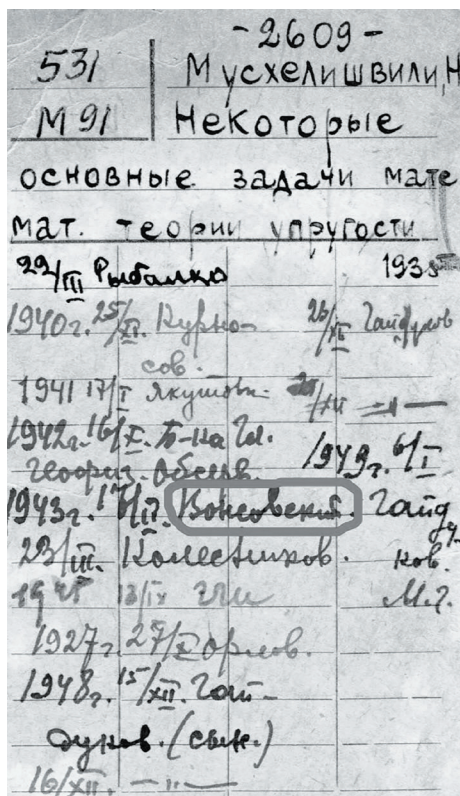 -2609-
531 Мусхелишвили, Н
М 91 Некоторые
основные задачи мате
мат. теории упругости
29/III Рыбалко 1935
1940г. 25/XI. Курно- 26/XI Гайдуков
сов.
1941 17/I Якушова /XII —"—
1942г. 16/X. Б-ка Гл.
Геофиз. Обсерв. 1949г. 6/I
1943г. /II. Вонсовский. Гайду
23/III. Колесников. ков.
1945 13/IX М.Г.
1927г. 27/X Орлов.
1948г. 15/XII. Гай-
дуков. (сын.)
16/XII. —"—